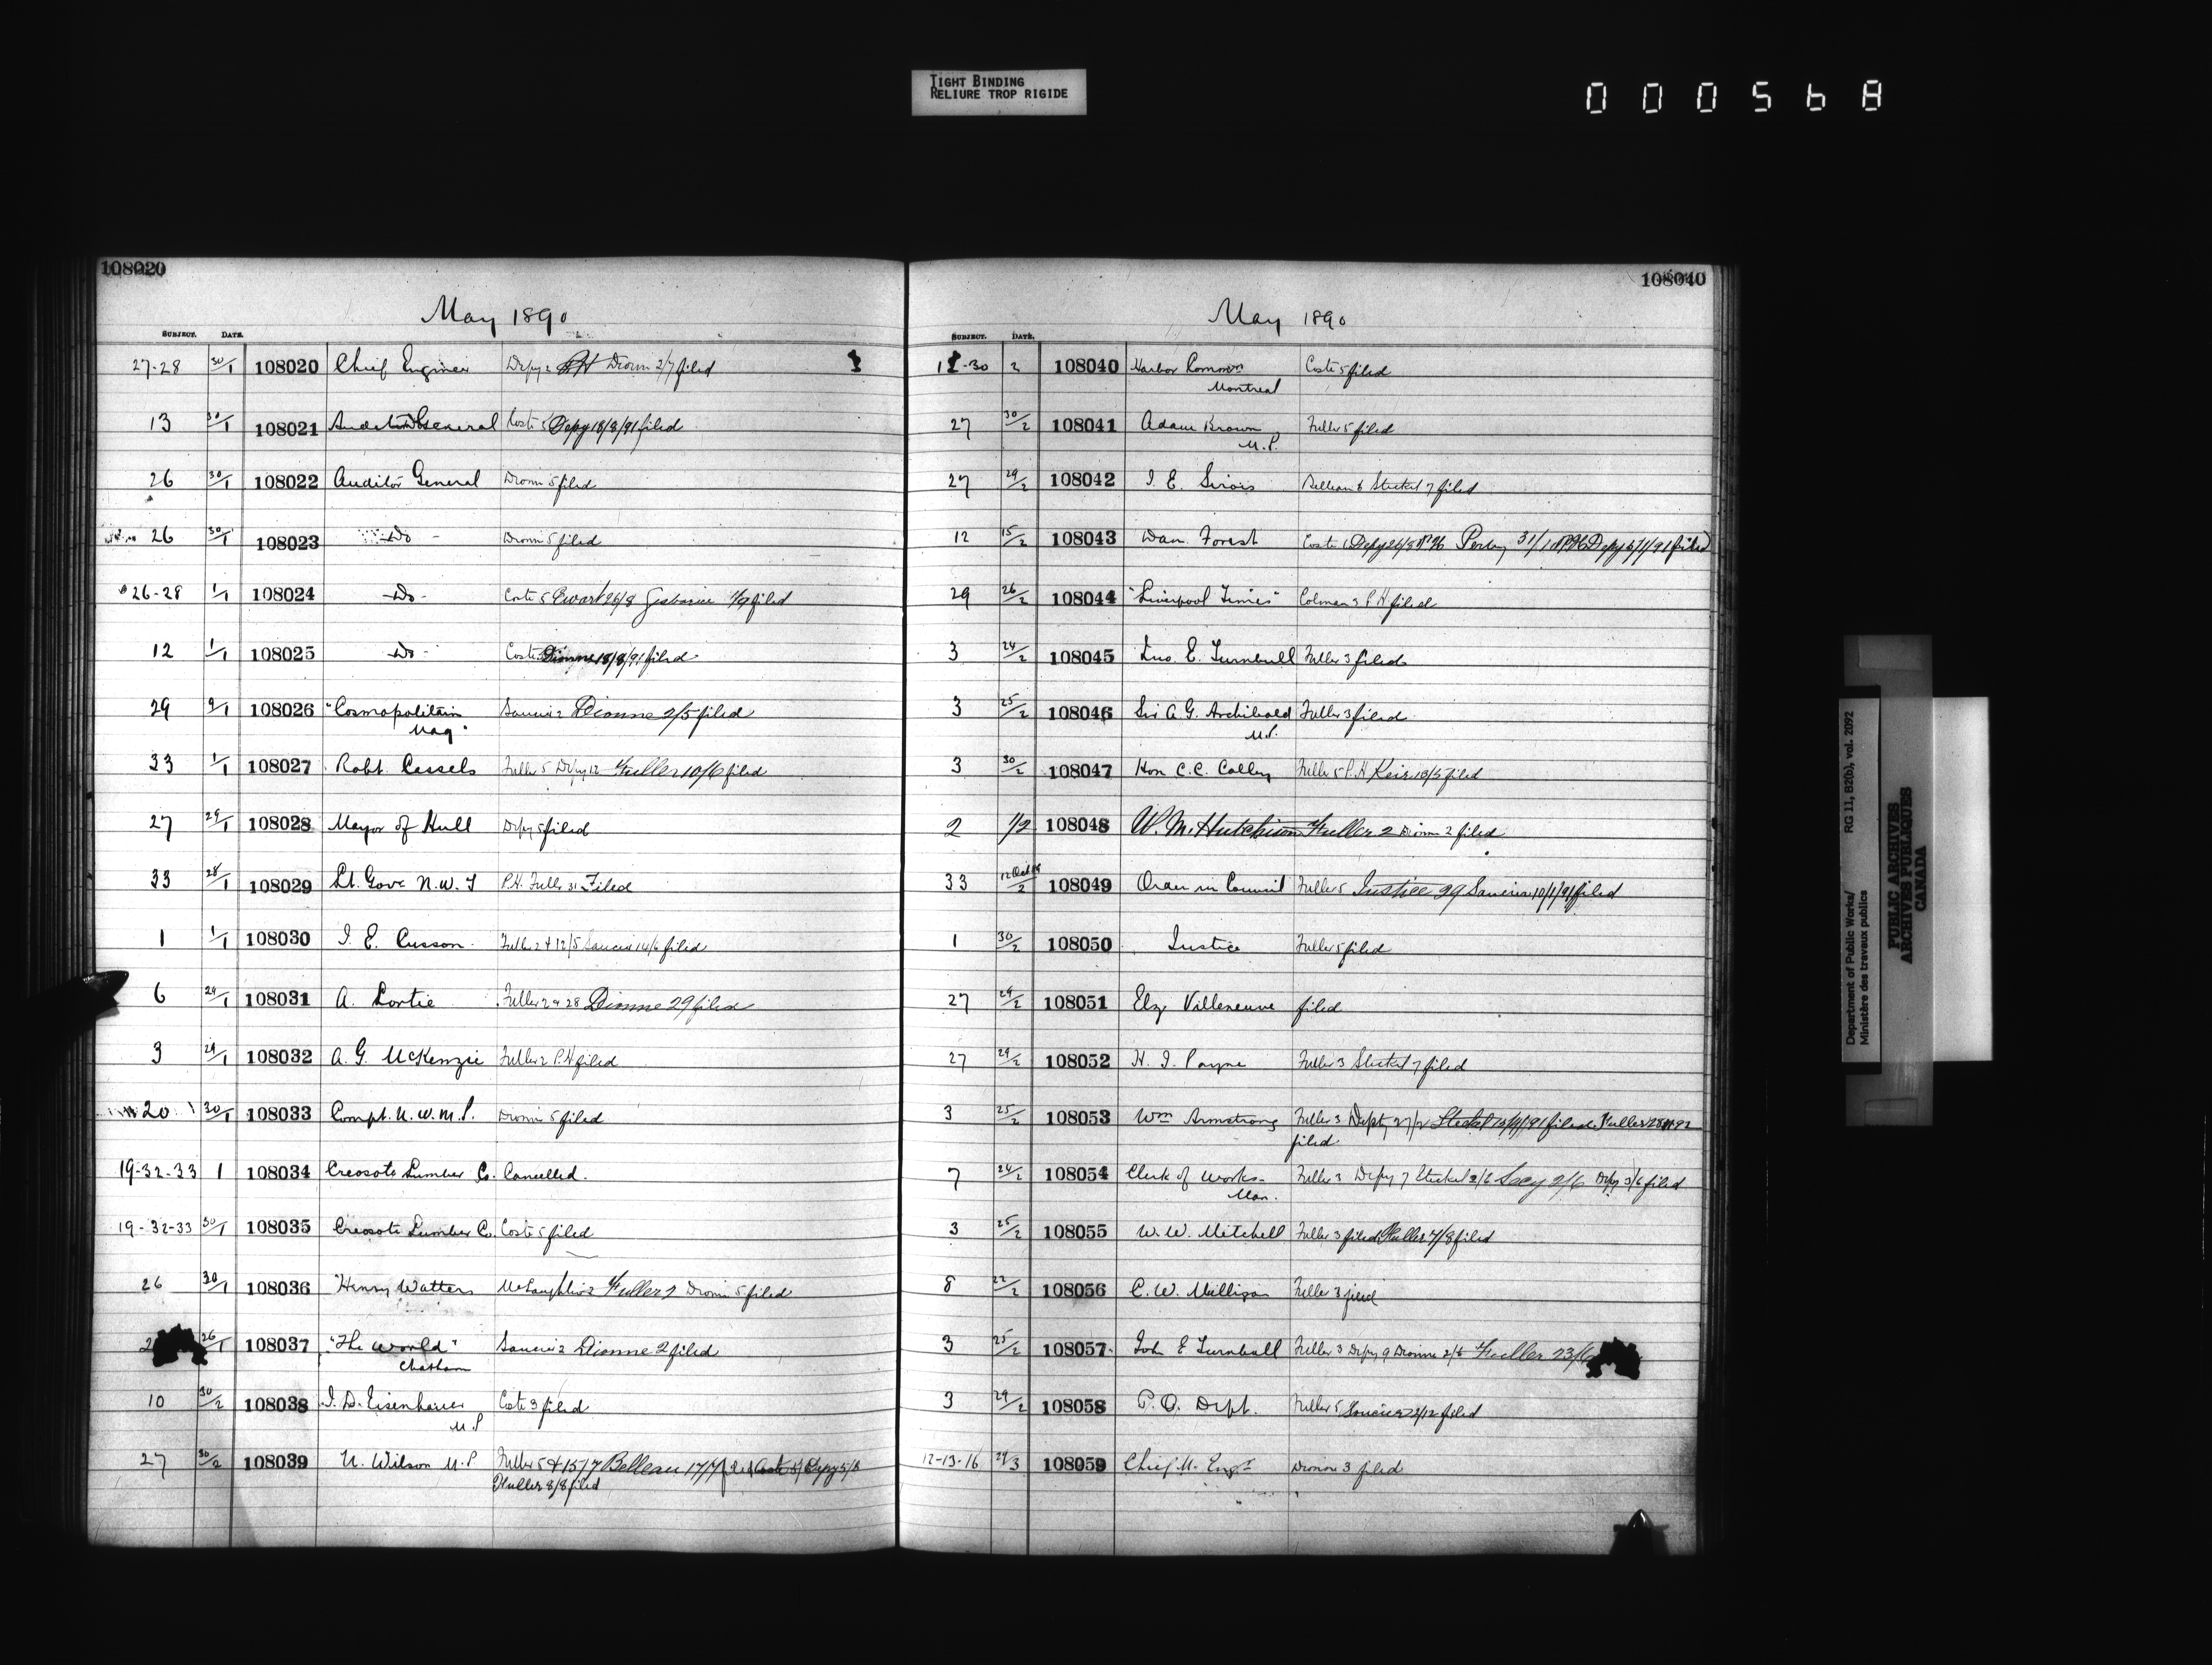 TIGHT BINDING
RELIURE TROP RIGIDE
000568
108020
May 1890
SUBJECT. DATE.
27-28 30/1 108020 Chief Engineer Depy 2 PH Dionne 2/7 filed
13 30/1 108021 Auditor General Coste 5 Depy 18/8/91 filed
26 30/1 108022 Auditor General Dionne 5 filed
26 30/1 108023 - Do - Dionne 5 filed
26-28 1/1 108024 - Do - Coste 5 Ewart 26/8 1/9 filed
12 1/1 108025 - Do - Coste Dionne 18/8/91 filed
29 2/1 108026 "Cosmopolitain Saucier 2 Dionne 2/5 filed
Mag"
33 1/1 108027 Robt. Cassels Fuller 5 Depy 12 Fuller 10/6 filed
27 29/1 108028 Mayor of Hull Depy 5 filed
33 28/1 108029 Lt. Govr N.W.T P.H. Fuller 31 Filed
1 1/1 108030 J. E. Cusson Fuller 2 & 12/5 Saucier 14/6 filed
6 29/1 108031 A. Lortie Fuller 2 & 28 Dionne 29 filed
3 29/1 108032 A. G. McKenzie Fuller 2 P.H filed
20 30/1 108033 Compt. N.W.M.P. Dionne 5 filed
19-32-33 1 108034 Creosote Lumber Co. Cancelled.
19-32-33 30/1 108035 Creosote Lumber Co. Coste 5 filed
26 30/1 108036 Henry Watters McLaughlin 2 Fuller 2 Dionne 5 filed
2 26/1 108037 "The World" Saucier 2 Dionne 2 filed
Chatham
10 30/2 108038 J. D. Eisenhauer Coste 3 filed
M.P
27 30/2 108039 U. Wilson M.P Fuller 5 & 15/7 Belleau 17/7 filed Coste 5/ Depy 5/8
Fuller 8/8 filed
108040
May 1890
SUBJECT. DATE.
12-30 2 108040 Harbor Commrs Coste 5 filed
Montreal
27 30/2 108041 Adam Brown Fuller 5 filed
M.P.
27 29/2 108042 J. E. Sirois Belleau 6 Steckel 7 filed
12 15/2 108043 Dan. Forest Coste Depy 26/8 PH Perley 31/1 PH Depy 6/1/91 filed
29 26/2 108044 "Liverpool Times" Colman 3 P.H filed
3 24/2 108045 Jno. E. Turnbull Fuller 3 filed
3 25/2 108046 Sir A. G. Archibald Fuller 3 filed
M.P.
3 30/2 108047 Hon C. C. Colby Fuller 5 P.H Keir 13/5 filed
2 1/2 108048 W. M. Hutchison Fuller 2 Dionne 2 filed
33 12 Oct /2 108049 Order in Council Fuller 5 Justice 29 Saucier 10/1/91 filed
1 30/2 108050 Justice Fuller 5 filed
27 29/2 108051 Elz Villeneuve filed
27 29/2 108052 H. J. Payne Fuller 3 Steckel 7 filed
3 25/2 108053 Wm Armstrong Fuller 3 Depty 27/2 Steckel 10/4/91 filed Fuller 92
filed
7 24/2 108054 Clerk of Works Fuller 3 Depy 7 Steckel 2/6 Secy 2/6 Depy 3/6 filed
Man.
3 25/2 108055 W. W. Mitchell Fuller 3 filed Fuller 4/8 filed
8 22/2 108056 C. W. Milligan Fuller 3 filed
3 25/2 108057 Joh E Turnbull Fuller 3 Depy 9 Dionne 2/6 Fuller 23/6
3 29/2 108058 P.O. Dept. Fuller 5 Saucier 2/12 filed
12-13-16 29/3 108059 Chief M. Engr Dionne 3 filed
Department of Public Works/
Ministère des travaux publics
RG 11, B2(b), vol. 2092
PUBLIC ARCHIVES
ARCHIVES PUBLIQUES
CANADA